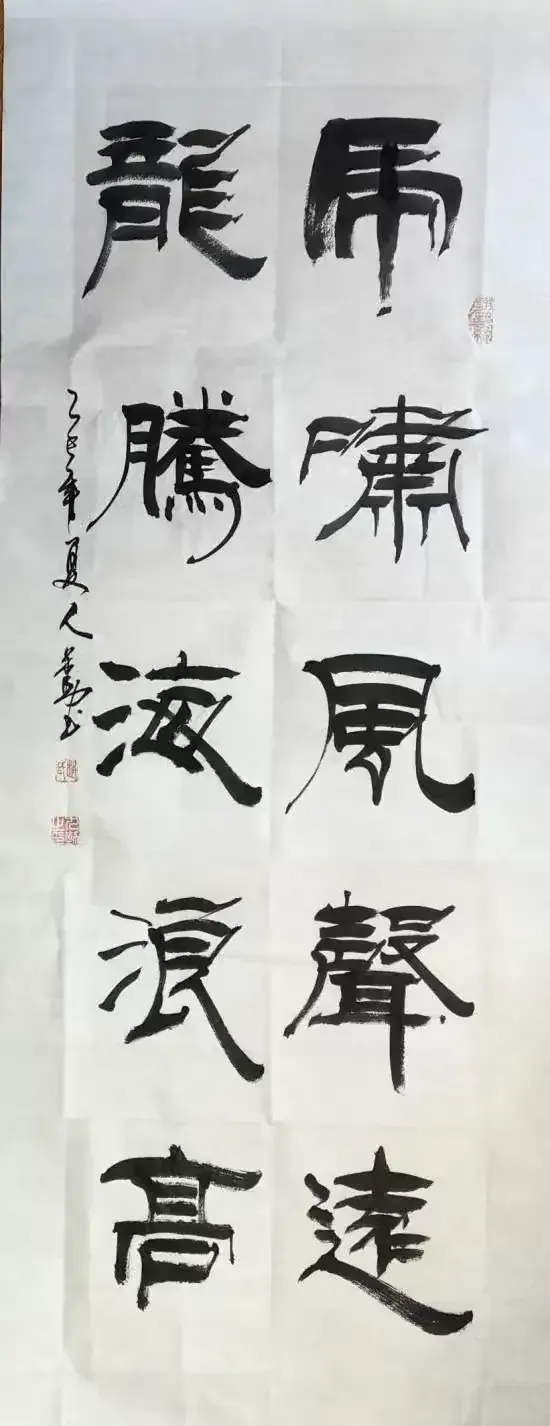 虎嘯風聲遠
龍騰海浪高
乙巳年夏人